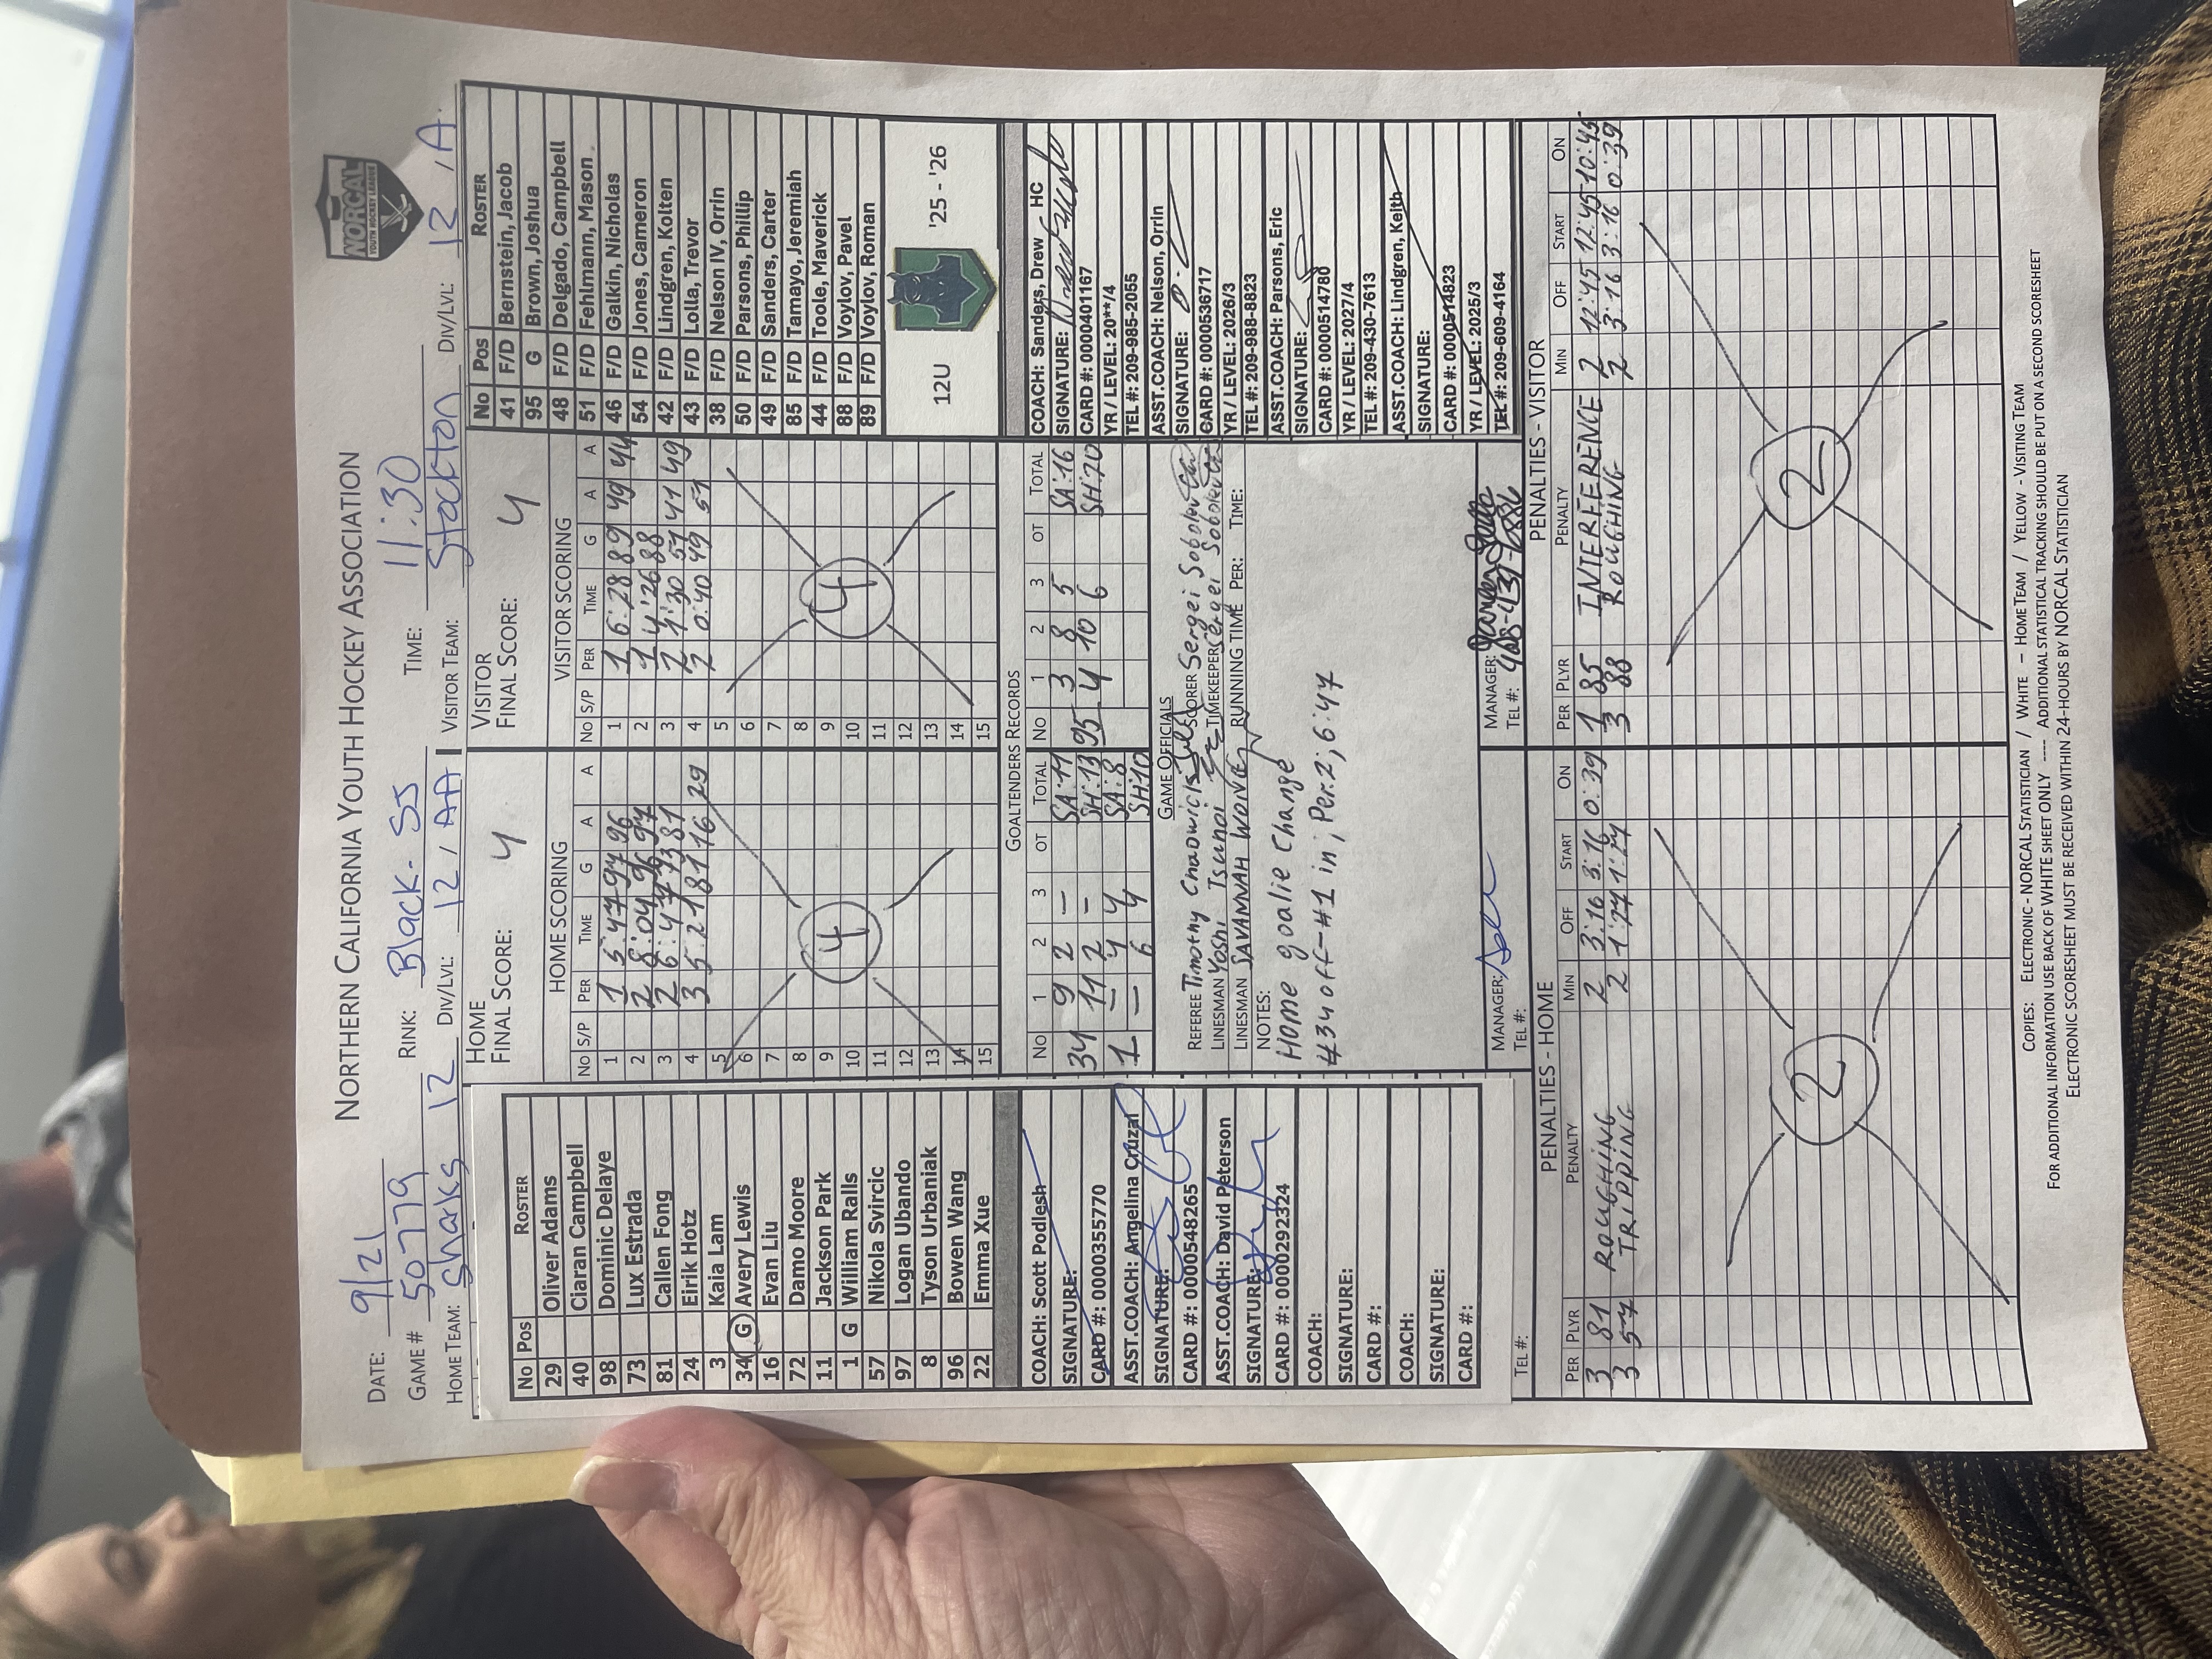 NORCAL
YOUTH HOCKEY LEAGUE
NORTHERN CALIFORNIA YOUTH HOCKEY ASSOCIATION
DATE: 9/21 RINK: Black-SJ TIME: 11:30
GAME # 50779
HOME TEAM: Sharks 12 Div/LVL: 12, AA VISITOR TEAM: Stockton Div/LVL: 12, A
No Pos ROSTER
29 Oliver Adams
40 Ciaran Campbell
98 Dominic Delaye
73 Lux Estrada
81 Callen Fong
24 Eirik Hotz
3 Kaia Lam
34 G Avery Lewis
16 Evan Liu
72 Damo Moore
11 Jackson Park
1 G William Ralls
57 Nikola Svircic
97 Logan Ubando
8 Tyson Urbaniak
96 Bowen Wang
22 Emma Xue
COACH: Scott Podlesh
SIGNATURE:
CARD #: 0000355770
ASST.COACH: Angelina Cruzal
SIGNATURE:
CARD #: 0000548265
ASST.COACH: David Peterson
SIGNATURE:
CARD #: 0000292324
COACH:
SIGNATURE:
CARD #:
COACH:
SIGNATURE:
CARD #:
TEL #:
HOME
FINAL SCORE: 4
HOME SCORING
NO S/P PER TIME G A A
1 1 5:47 97 96
2 2 8:04 96 97
3 2 6:47 73 81
4 3 5:21 81 16 29
5
6
7
8
9
10
11
12
13
14
15
4
VISITOR
FINAL SCORE: 4
VISITOR SCORING
NO S/P PER TIME G A A
1 1 6:28 89 49 44
2 1 4:26 88
3 2 1:30 51 41 49
4 2 0:40 49 51
5
6
7
8
9
10
11
12
13
14
15
4
GOALTENDERS RECORDS
NO 1 2 3 OT TOTAL NO 1 2 3 OT TOTAL
34 9 2 - SA:11 95 3 8 5 SA:16
11 2 - SH:13 4 10 6 SH:20
1 - 4 4 SA:8
- 6 4 SH:10
GAME OFFICIALS
REFEREE Timothy SCORER Sergei Sobolev
LINESMAN Yoshi Tsunoi TIMEKEEPER Sergei Sobolev
LINESMAN SAVANNAH WONG RUNNING TIME PER: TIME:
NOTES:
Home goalie change
#34 off-#1 in; Per.2; 6:47
MANAGER: MANAGER:
TEL #: TEL #:
No Pos ROSTER
41 F/D Bernstein, Jacob
95 G Brown, Joshua
48 F/D Delgado, Campbell
51 F/D Fehlmann, Mason
46 F/D Galkin, Nicholas
54 F/D Jones, Cameron
42 F/D Lindgren, Kolten
43 F/D Lolla, Trevor
38 F/D Nelson IV, Orrin
50 F/D Parsons, Phillip
49 F/D Sanders, Carter
85 F/D Tamayo, Jeremiah
44 F/D Toole, Maverick
88 F/D Voylov, Pavel
89 F/D Voylov, Roman
12U '25 - '26
COACH: Sanders, Drew HC
SIGNATURE:
CARD #: 0000401167
YR / LEVEL: 20**/4
TEL #: 209-985-2055
ASST.COACH: Nelson, Orrin
SIGNATURE:
CARD #: 0000536717
YR / LEVEL: 2026/3
TEL #: 209-988-8823
ASST.COACH: Parsons, Eric
SIGNATURE:
CARD #: 0000514780
YR / LEVEL: 2027/4
TEL #: 209-430-7613
ASST.COACH: Lindgren, Keith
SIGNATURE:
CARD #: 0000514823
YR / LEVEL: 2025/3
TEL #: 209-609-4164
PENALTIES - HOME
PER PLYR PENALTY MIN OFF START ON
3 81 ROUGHING 2 3:16 3:16 0:39
3 57 TRIPPING 2 1:24 1:24
2
PENALTIES - VISITOR
PER PLYR PENALTY MIN OFF START ON
1 85 INTERFERENCE 2 12:45 12:45 10:45
3 88 ROUGHING 2 3:16 3:16 0:39
2
COPIES: ELECTRONIC - NORCAL STATISTICIAN / WHITE - HOME TEAM / YELLOW - VISITING TEAM
FOR ADDITIONAL INFORMATION USE BACK OF WHITE SHEET ONLY ---- ADDITIONAL STATISTICAL TRACKING SHOULD BE PUT ON A SECOND SCORESHEET
ELECTRONIC SCORESHEET MUST BE RECEIVED WITHIN 24-HOURS BY NORCAL STATISTICIAN